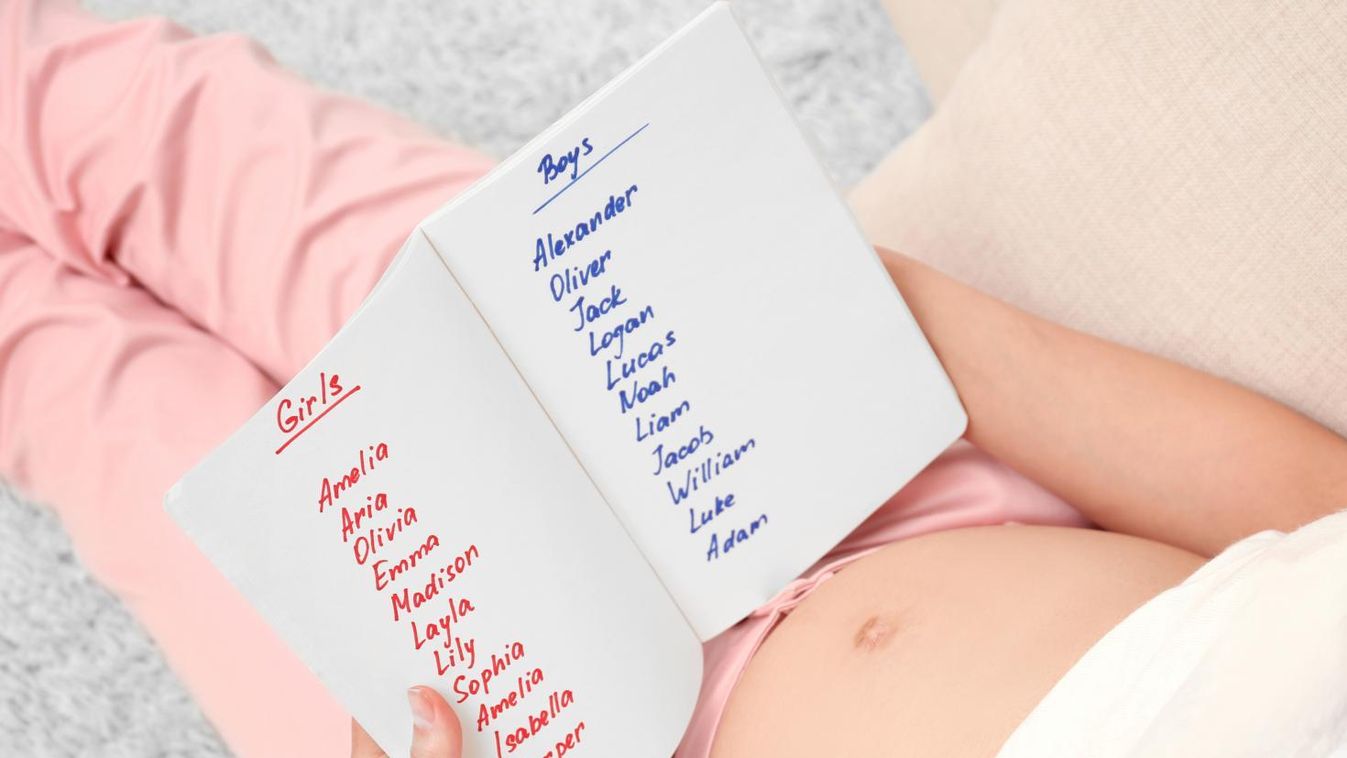 Girls
Amelia
Aria
Olivia
Emma
Madison
Layla
Lily
Sophia
Amelia
Isabella
Boys
Alexander
Oliver
Jack
Logan
Lucas
Noah
Liam
Jacob
William
Luke
Adam